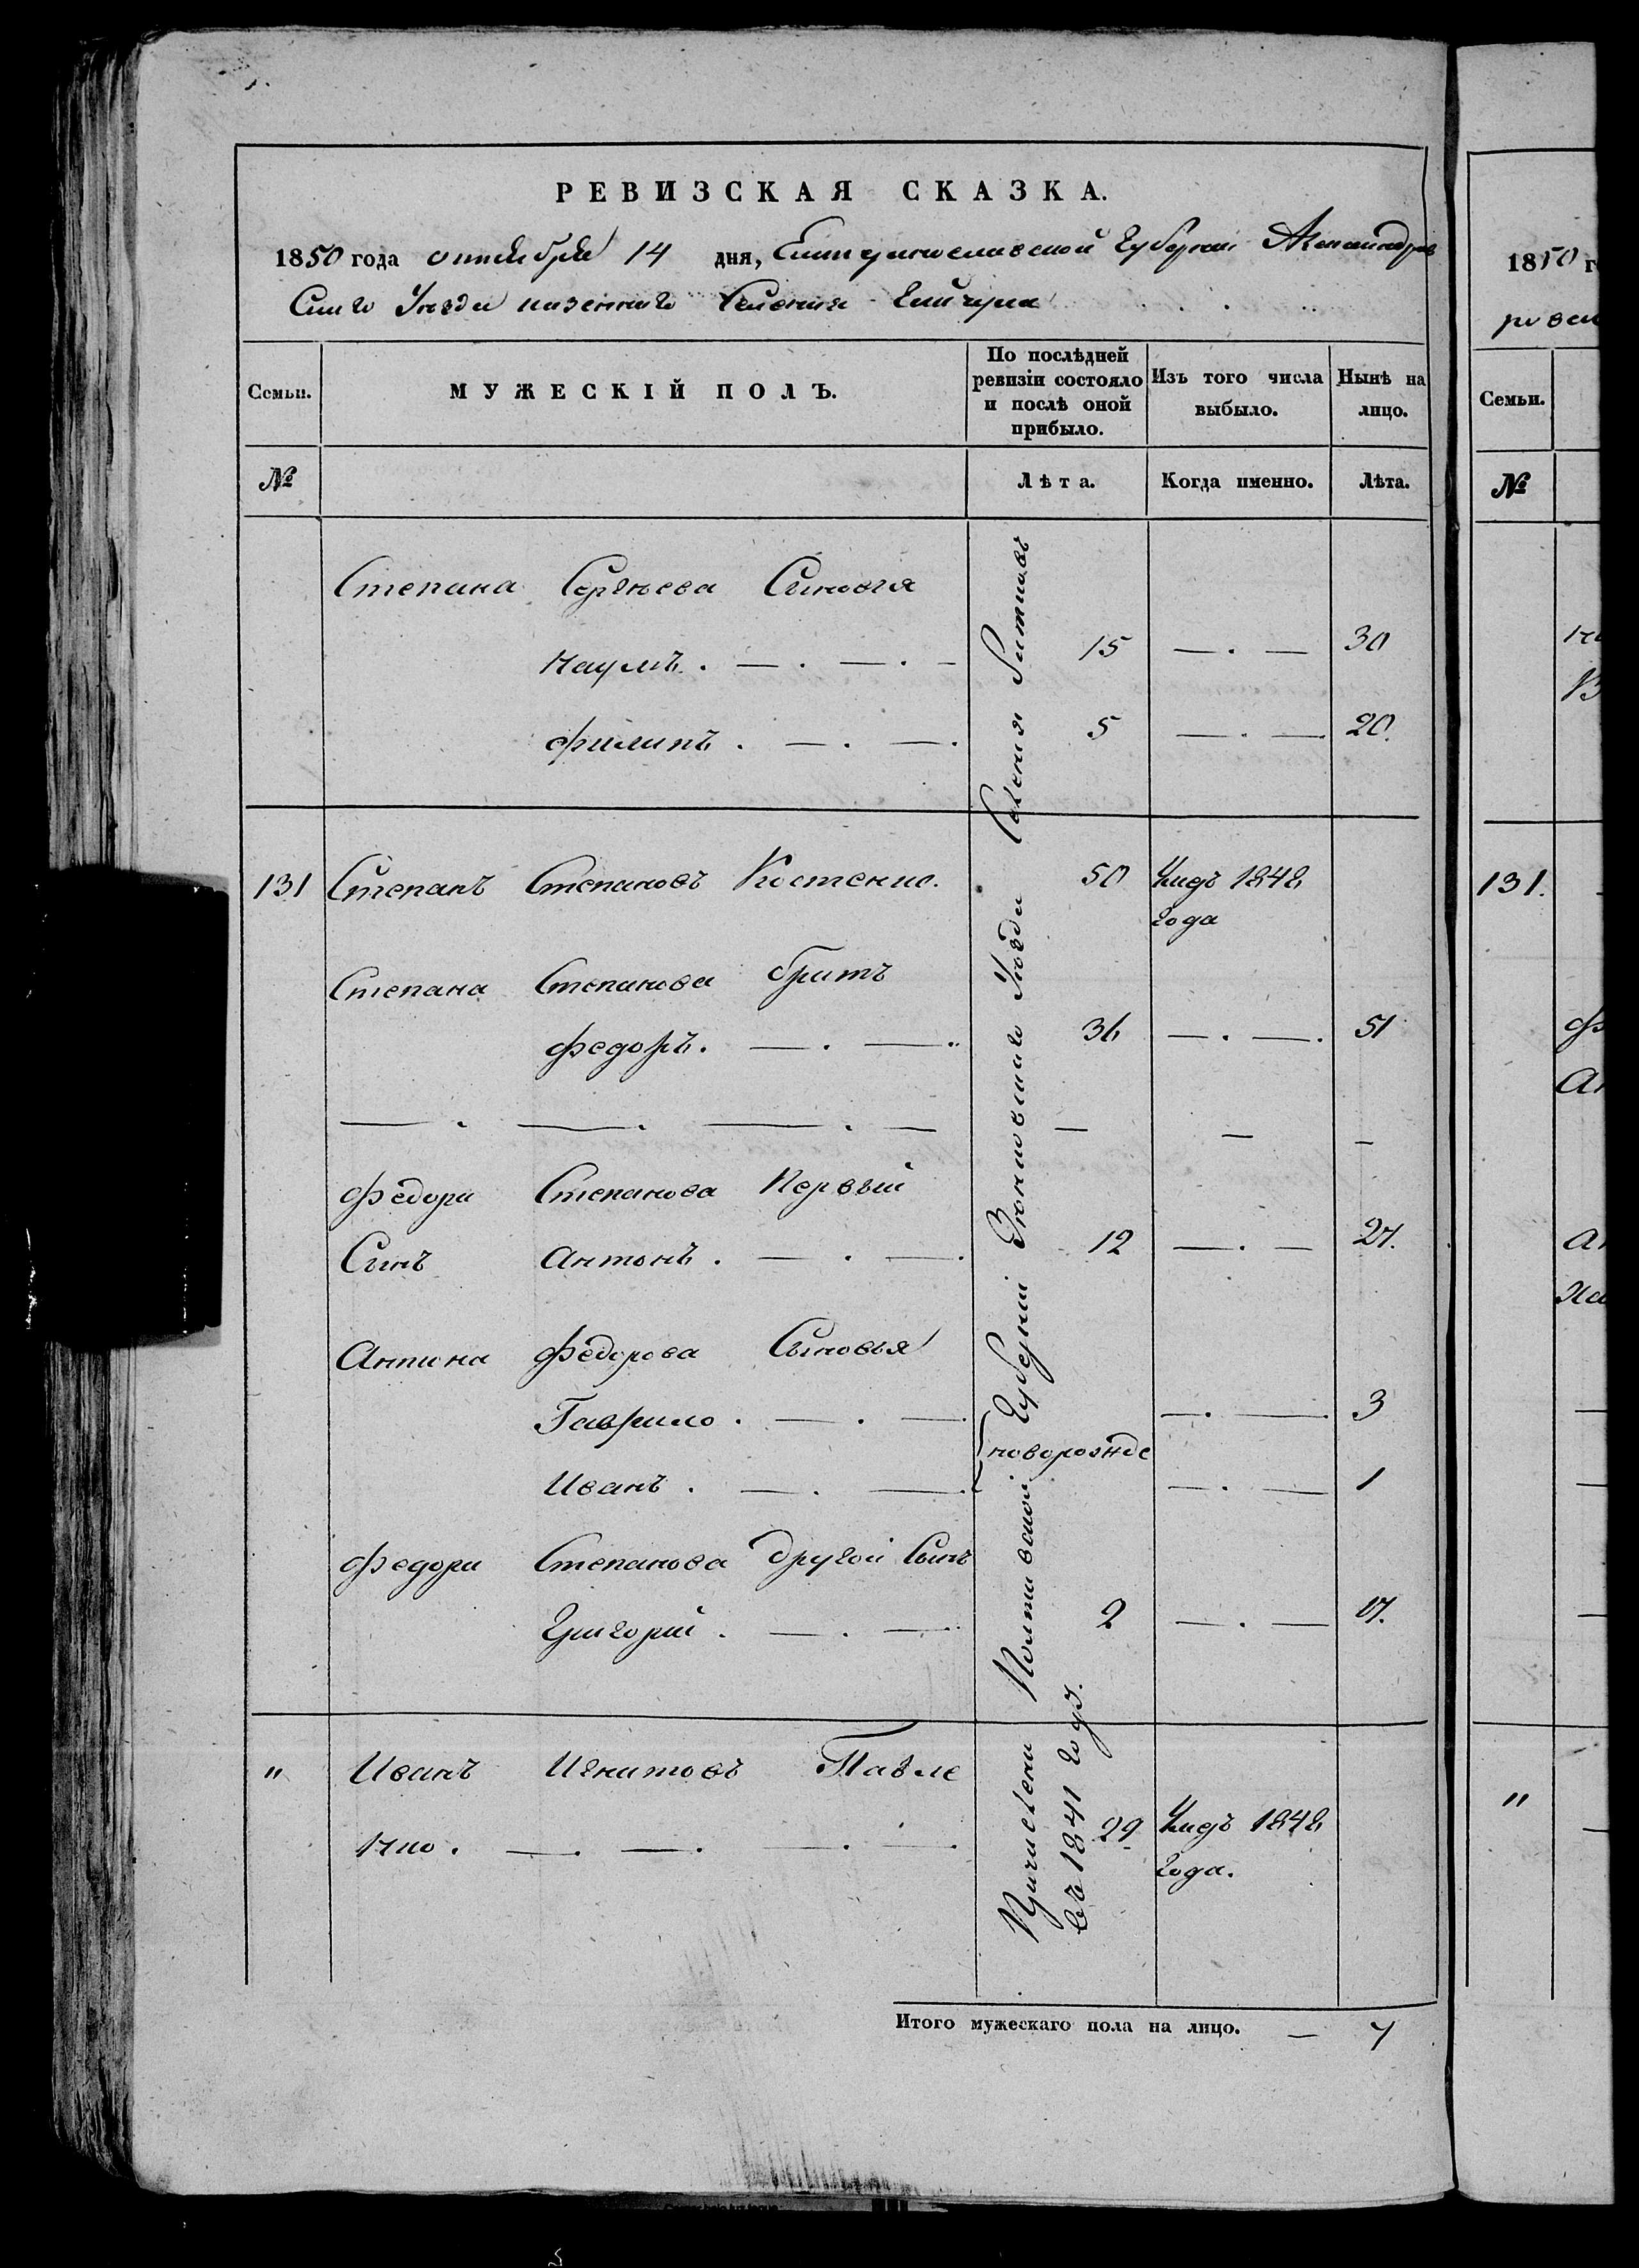 РЕВИЗСКАЯ СКАЗКА.
1850 года октября 14 дня, Екатеринославской Губернии Александров
Скаго Уѣзда казеннаго Селения
Семьи.
МУЖЕСКІЙ ПОЛЪ.
По послѣдней ревизіи состояло и послѣ оной прибыло.
Изъ того числа выбыло.
Нынѣ на лицо.
№
Лѣта.
Когда именно.
Лѣта.
Степана Сергѣева Сыновья
Наумъ. 15 30
Филипъ. 5 20.
131 Степанъ Степановъ Костенко. 50 Умеръ 1848
года
Степана Степанова братъ
Федоръ. 36 51
Федора Степанова Первый
Сынъ Антонъ. 12 27.
Антона Федорова Сыновья
Гаврило. 3
новорожде
Иванъ. 1
Федора Степанова другой Сынъ
Григорий. 2 17.
" Иванъ Игнатовъ Павле
нко. 29 Умеръ 1848
года.
Причислены Полтавской Губернии Зѣньковскаго Уѣзда Селения
въ 1841 годѣ.
Итого мужескаго пола на лицо. — 7
1850 г
Семьи.
№
131.
"